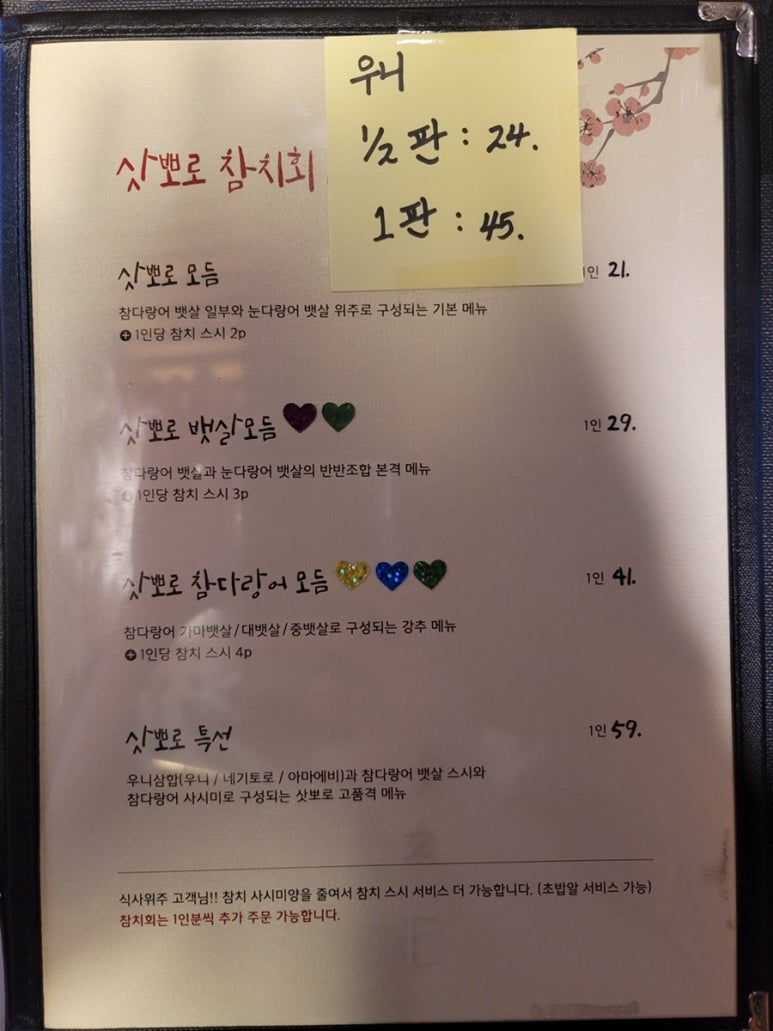 우니
1/2 판 : 24.
1판 : 45.
삿뽀로 참치회
삿뽀로 모듬 1인 21.
참다랑어 뱃살 일부와 눈다랑어 뱃살 위주로 구성되는 기본 메뉴
+ 1인당 참치 스시 2p
삿뽀로 뱃살모듬 1인 29.
참다랑어 뱃살과 눈다랑어 뱃살의 반반조합 본격 메뉴
+ 1인당 참치 스시 3p
삿뽀로 참다랑어 모듬 1인 41.
참다랑어 가마뱃살/대뱃살/중뱃살로 구성되는 강추 메뉴
+ 1인당 참치 스시 4p
삿뽀로 특선 1인 59.
우니삼합(우니 / 네기토로 / 아마에비)과 참다랑어 뱃살 스시와
참다랑어 사시미로 구성되는 삿뽀로 고품격 메뉴
식사위주 고객님!! 참치 사시미양을 줄여서 참치 스시 서비스 더 가능합니다. (초밥알 서비스 가능)
참치회는 1인분씩 추가 주문 가능합니다.